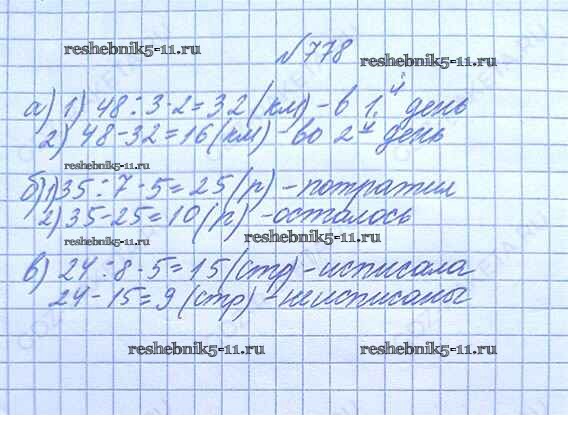 reshebnik5-11.ru
№778
reshebnik5-11.ru
а) 1) 48:3·2=32(км)-в 1й день
2) 48-32=16(км)-во 2й день
reshebnik5-11.ru
б) 1) 35:7·5=25(р)-потратил
2) 35-25=10(р)-осталось
reshebnik5-11.ru
reshebnik5-11.ru
в) 24:8·5=15(стр)-исписала
24-15=9(стр)-неисписаны
reshebnik5-11.ru
reshebnik5-11.ru